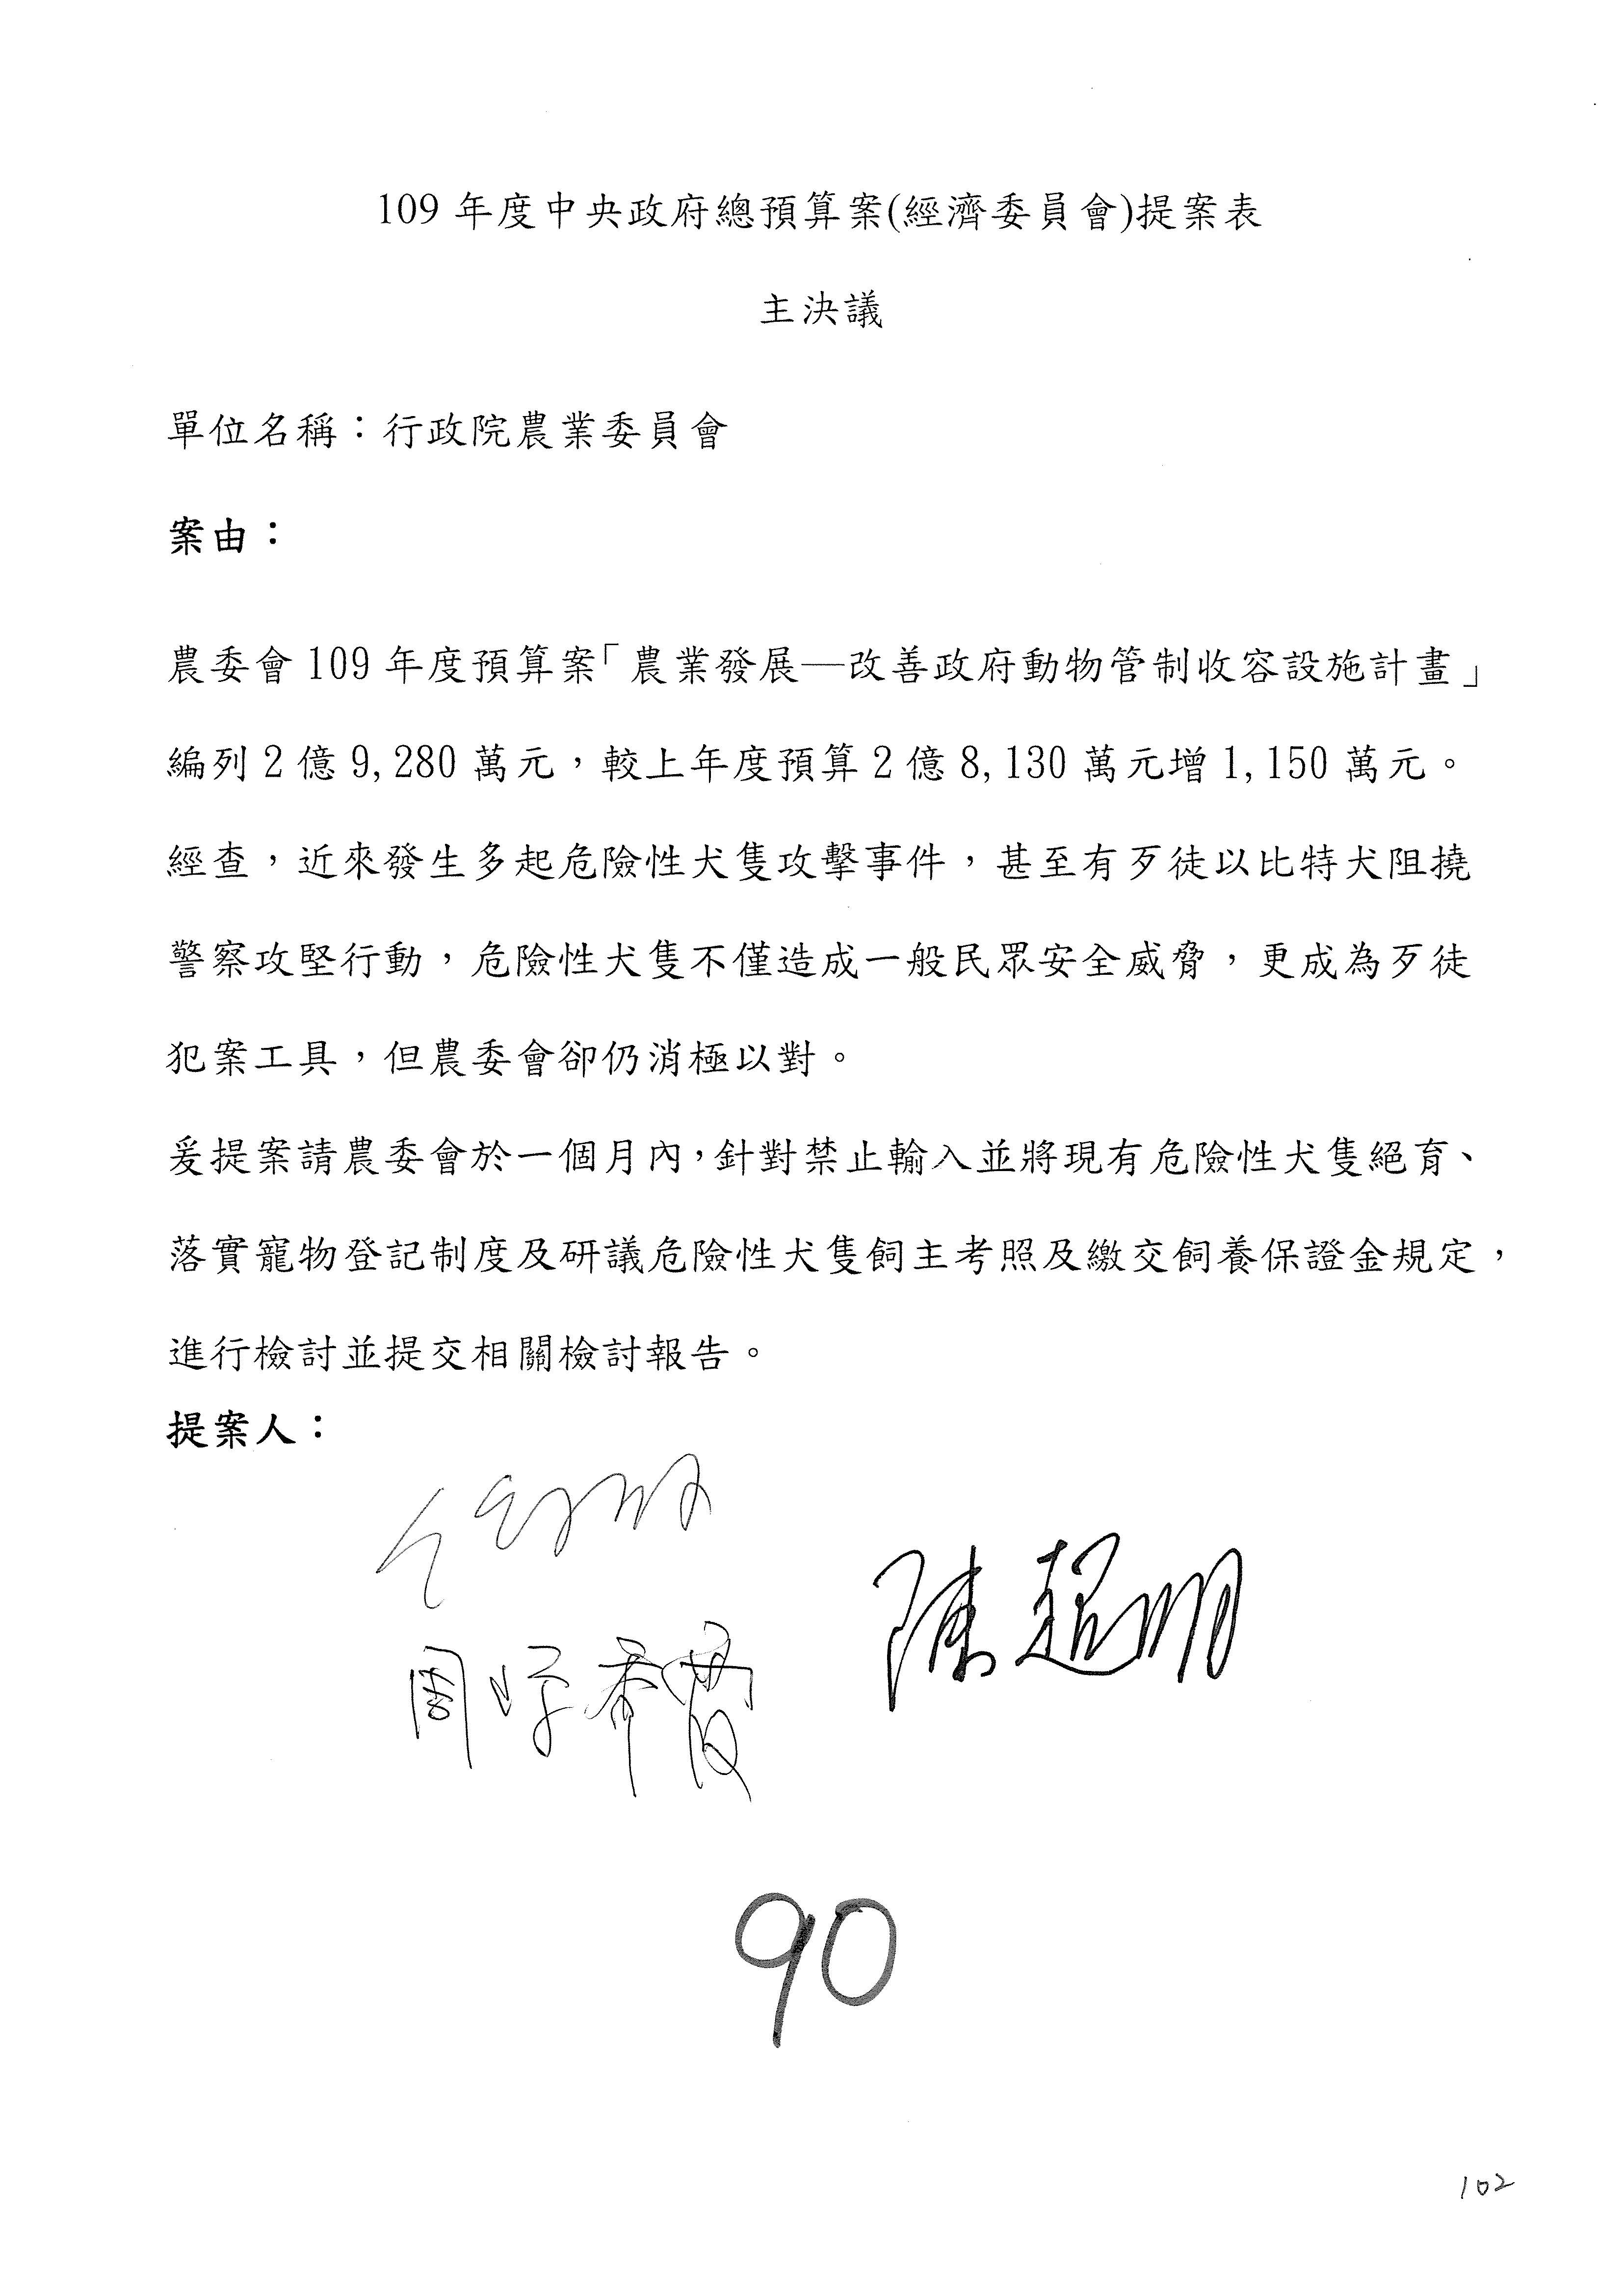 109 年度中央政府總預算案(經濟委員會)提案表
主決議
單位名稱：行政院農業委員會
案由：
農委會 109 年度預算案「農業發展—改善政府動物管制收容設施計畫」
編列 2 億 9,280 萬元，較上年度預算 2 億 8,130 萬元增 1,150 萬元。
經查，近來發生多起危險性犬隻攻擊事件，甚至有歹徒以比特犬阻撓
警察攻堅行動，危險性犬隻不僅造成一般民眾安全威脅，更成為歹徒
犯案工具，但農委會卻仍消極以對。
爰提案請農委會於一個月內，針對禁止輸入並將現有危險性犬隻絕育、
落實寵物登記制度及研議危險性犬隻飼主考照及繳交飼養保證金規定，
進行檢討並提交相關檢討報告。
提案人：
陳超明
90
102